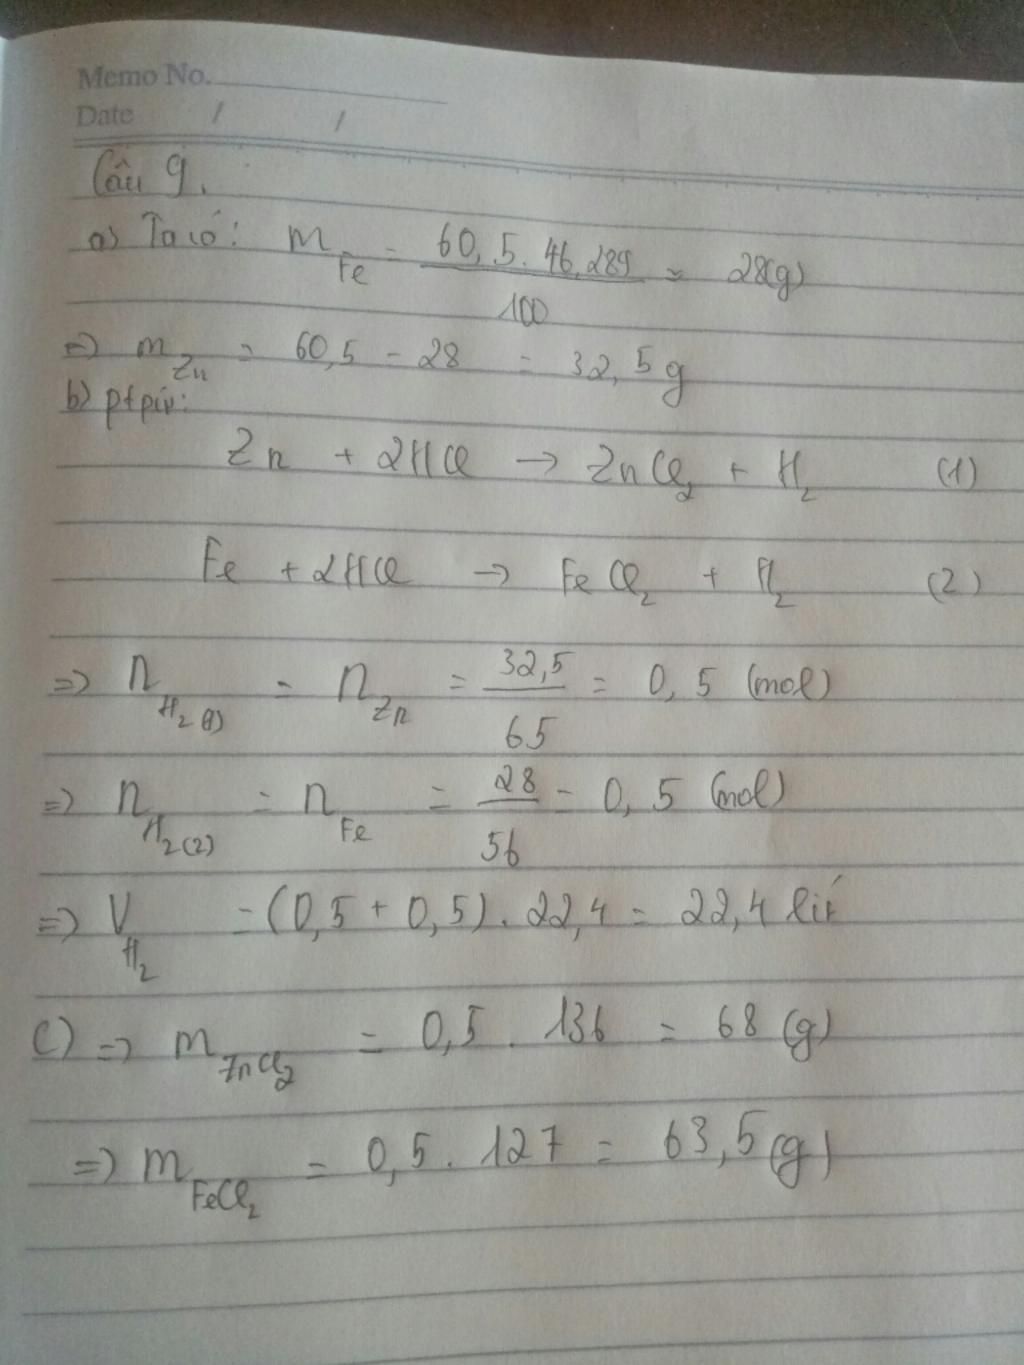 Memo No.
Date / /
Câu 9.
a) Ta có: m Fe = 60,5.46,289 / 100 = 28(g)
=> m Zn = 60,5 - 28 = 32,5g
b) ptpứ:
Zn + 2HCl → ZnCl2 + H2 (1)
Fe + 2HCl → FeCl2 + H2 (2)
=> n H2(1) = n Zn = 32,5 / 65 = 0,5 (mol)
=> n H2(2) = n Fe = 28 / 56 = 0,5 (mol)
=> V H2 = (0,5 + 0,5). 22,4 = 22,4 lít
c) => m ZnCl2 = 0,5 . 136 = 68 (g)
=> m FeCl2 = 0,5. 127 = 63,5(g)